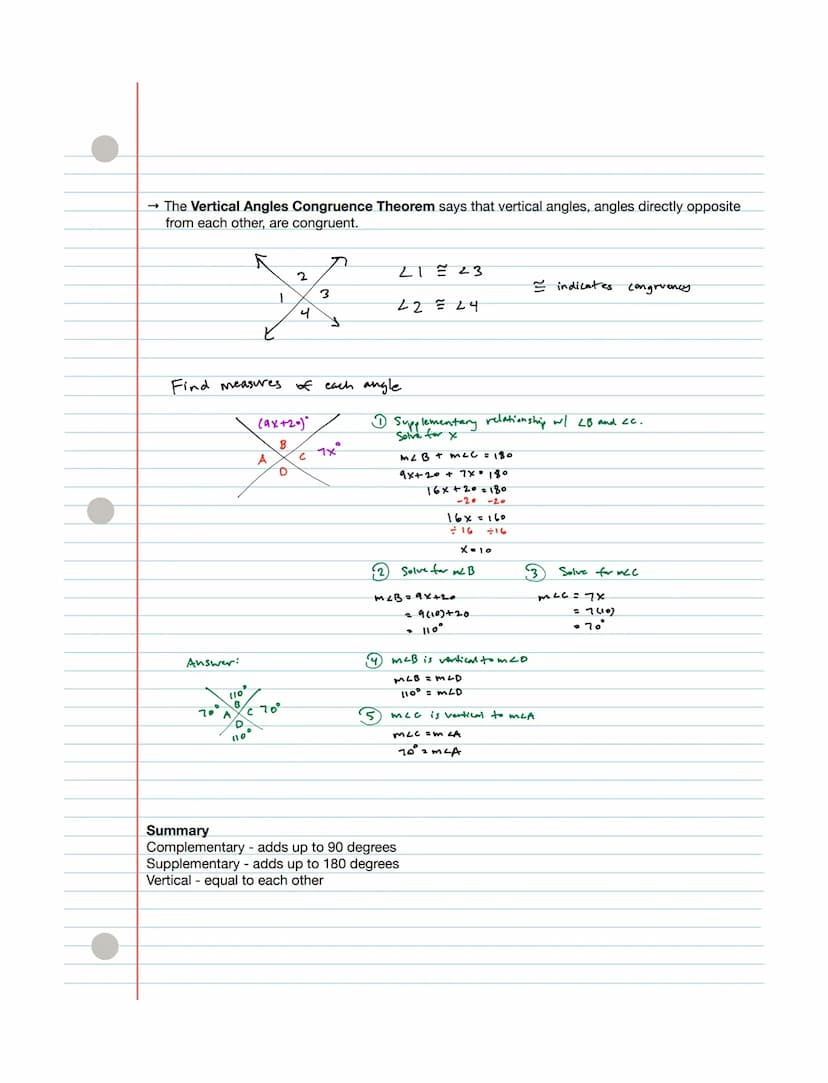 → The Vertical Angles Congruence Theorem says that vertical angles, angles directly opposite
from each other, are congruent.
2
1
3
4
∠1 ≅ ∠3
∠2 ≅ ∠4
≅ indicates congruency
Find measures of each angle
(9x+20)°
B
A
C 7x°
D
① Supplementary relationship w/ ∠B and ∠C.
Solve for x
m∠B + m∠C = 180
9x+20 + 7x = 180
16x+20 = 180
-20 -20
16x = 160
÷16 ÷16
x=10
② Solve for m∠B
m∠B = 9x+20
= 9(10)+20
= 110°
③ Solve for m∠C
m∠C = 7x
= 7(10)
= 70°
Answer:
110°
B
70° A C 70°
D
110°
④ m∠B is vertical to m∠D
m∠B = m∠D
110° = m∠D
⑤ m∠C is vertical to m∠A
m∠C = m∠A
70° = m∠A
Summary
Complementary - adds up to 90 degrees
Supplementary - adds up to 180 degrees
Vertical - equal to each other